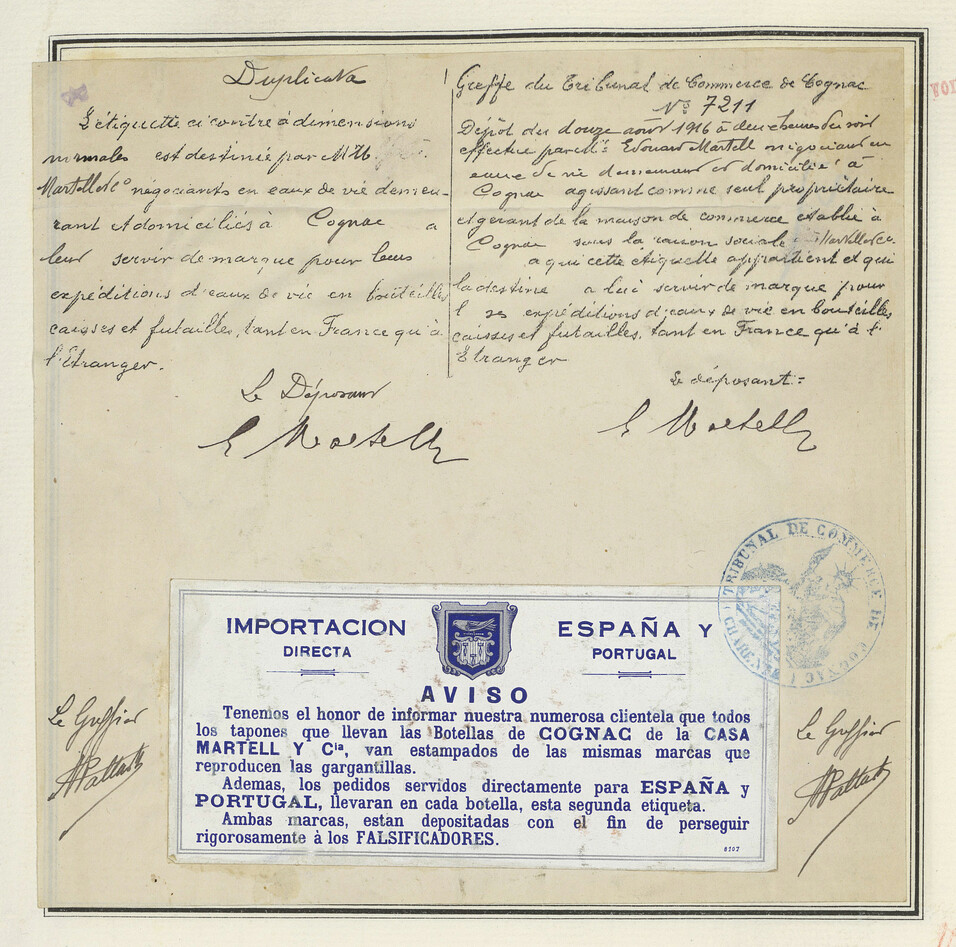 Duplicata
L'étiquette ci contre à dimensions
normales est destinée par MM.
Martell & Co négociants en eaux de vie demeu-
rant et domiciliés à Cognac a
leur servir de marque pour leurs
expéditions d'eaux de vie en bouteilles
caisses et futailles, tant en France qu'à
l'Etranger.
Le Déposant
E Martell
Greffe du Tribunal de Commerce de Cognac
No 7211
Dépôt du douze août 1916 à deux heures du soir
effectué par M. Edouard Martell négociant en
eaux de vie demeurant et domicilié à
Cognac agissant comme seul propriétaire
et gérant de la maison de commerce établie à
Cognac sous la raison sociale Martell & Co
a qui cette étiquette appartient et qui
la destine a lui servir de marque pour
ses expéditions d'eaux de vie en bouteilles,
caisses et futailles, tant en France qu'à l'
Etranger
Le déposant:
E Martell
TRIBUNAL DE COMMERCE DE COGNAC (CHARENTE)
IMPORTACION
DIRECTA
ESPAÑA Y
PORTUGAL
AVISO
Tenemos el honor de informar nuestra numerosa clientela que todos
los tapones que llevan las Botellas de COGNAC de la CASA
MARTELL Y Cia, van estampados de las mismas marcas que
reproducen las gargantillas.
Ademas, los pedidos servidos directamente para ESPAÑA y
PORTUGAL, llevaran en cada botella, esta segunda etiqueta.
Ambas marcas, estan depositadas con el fin de perseguir
rigorosamente à los FALSIFICADORES.
8107
Le Greffier
Le Greffier